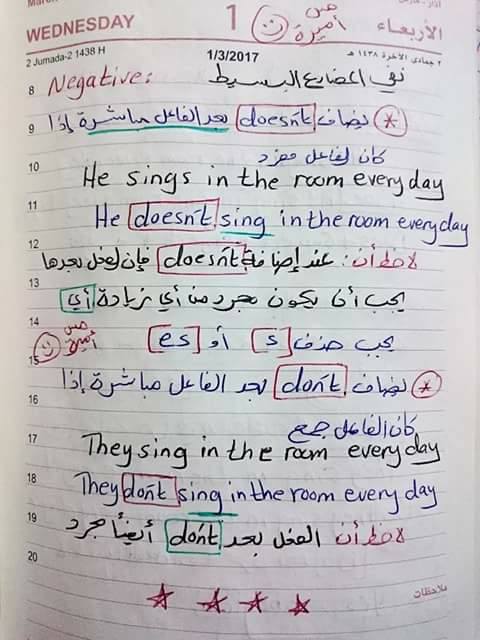 WEDNESDAY 1 مس أميرة الأربعاء
2 Jumada-2 1438 H 1/3/2017 ٢ جمادى الآخرة ١٤٣٨ هـ
8 Negative: نفي المضارع البسيط
9 * يضاف doesn't بعد الفاعل مباشرة إذا
كان الفاعل مفرد
10 He sings in the room every day
11 He doesn't sing in the room every day
12 لاحظ أن: عند إضافة doesn't فإن الفعل بعدها
13 يجب أن يكون مجرد من أي زيادة أي
14 يجب حذف s أو es
مس أميرة
15 * يضاف don't بعد الفاعل مباشرة إذا
16 كان الفاعل جمع
17 They sing in the room every day
18 They don't sing in the room every day
19 لاحظ أن الفعل بعد don't أيضاً مجرد
20
ملاحظات